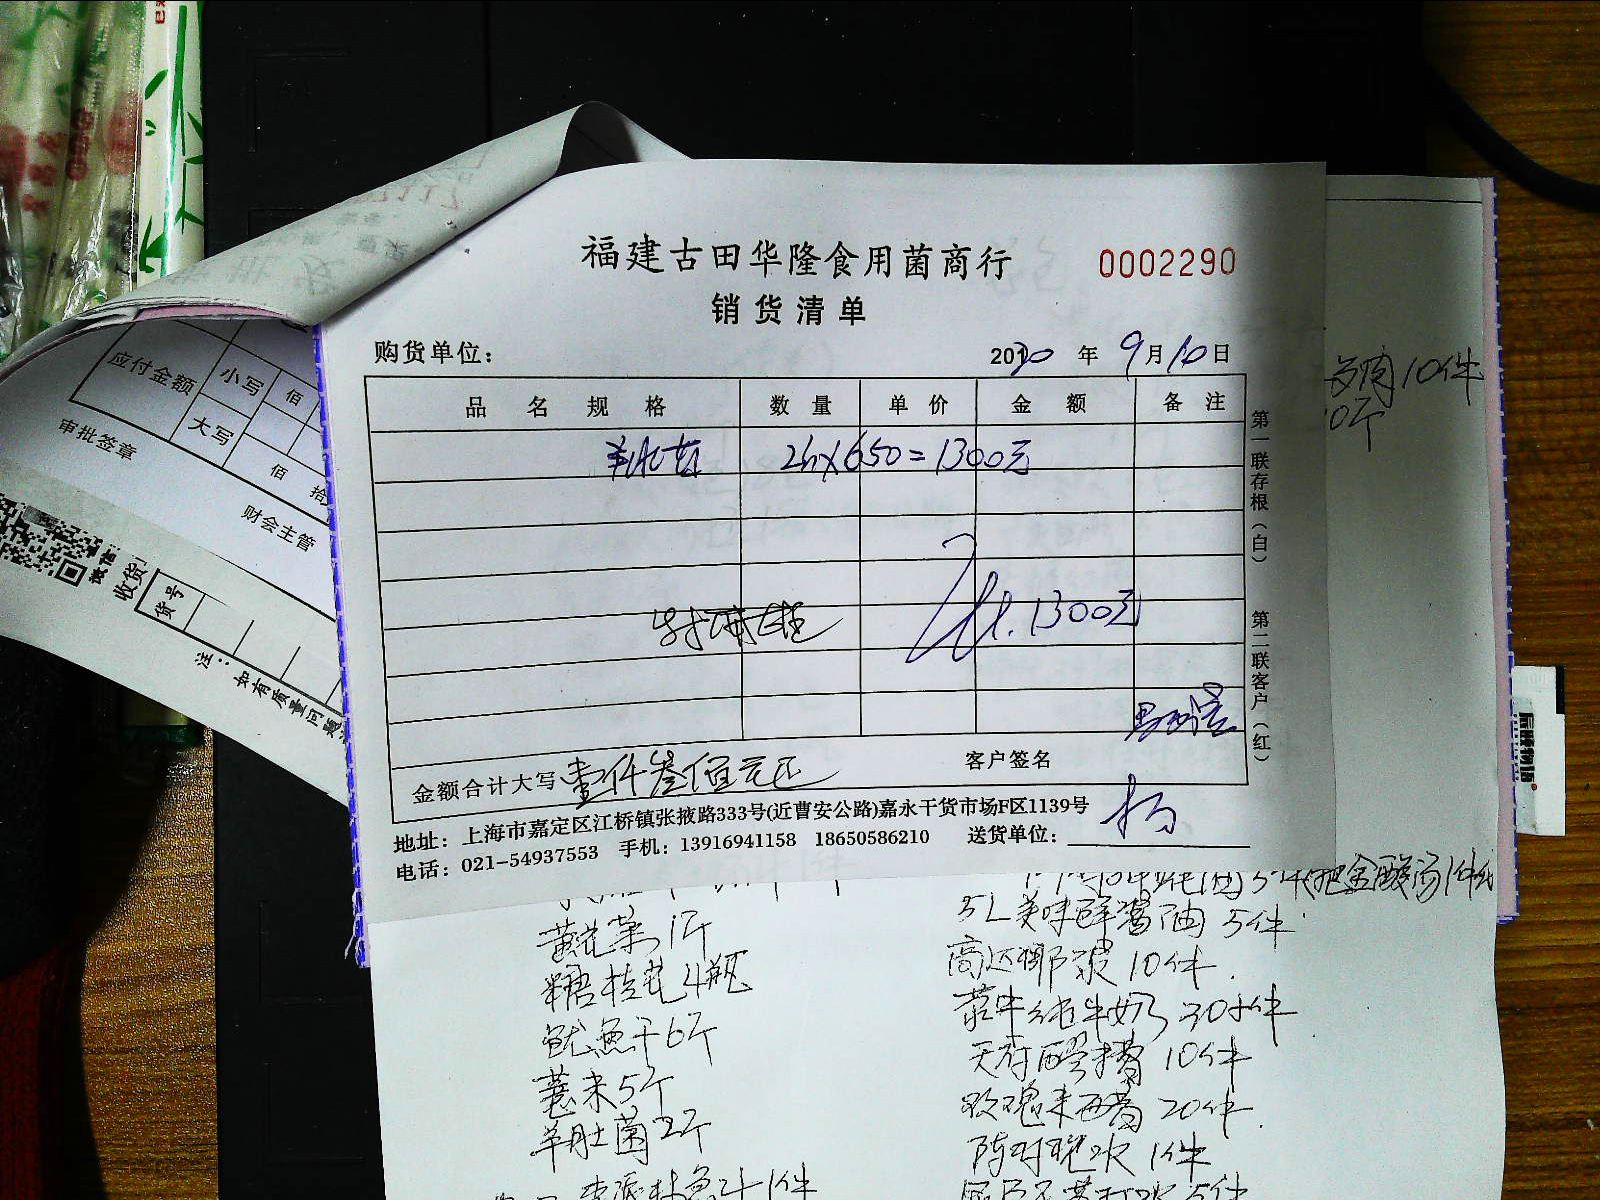 福建古田华隆食用菌商行
0002290
销货清单
购货单位：
2020 年 9月10日
品名规格 数量 单价 金额 备注
羊肚菌 2斤×650=1300元
计.1300元
金额合计大写 壹仟叁佰元正
客户签名
地址：上海市嘉定区江桥镇张掖路333号(近曹安公路)嘉永干货市场F区1139号
电话：021-54937553 手机：13916941158 18650586210 送货单位：
第一联存根（白）
第二联客户（红）
应付金额 小写 佰
大写 佰 拾
审批签章
财会主管
微信
收货
货号
注：如有质量问题
10件
黄花菜1斤
糖桂花4瓶
鱿鱼干6斤
薏米5斤
羊肚菌2斤
5L美味鲜酱油5件
高达椰浆10件
蒙牛纯牛奶30件
天府醪糟10件
玫瑰米酒 20件
1件